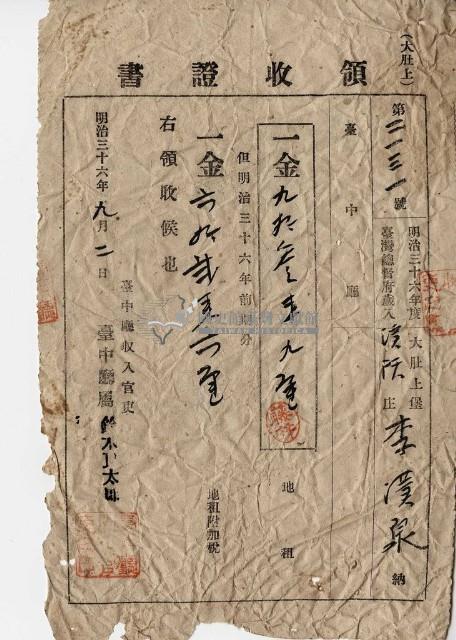 (大肚上)
領收證書
第二一三一號
明治三十六年度
臺灣總督府歲入
大肚上堡
庄
李
納
臺中廳
一金九拾叁錢九厘
地租
但明治三十六年前期分
一金六拾貳錢六厘
地租附加稅
右領收候也
明治三十六年九月二日
臺中廳收入官吏
臺中廳屬
國史館臺灣文獻館
TAIWAN HISTORICA